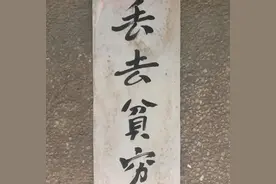 丢去貧穷